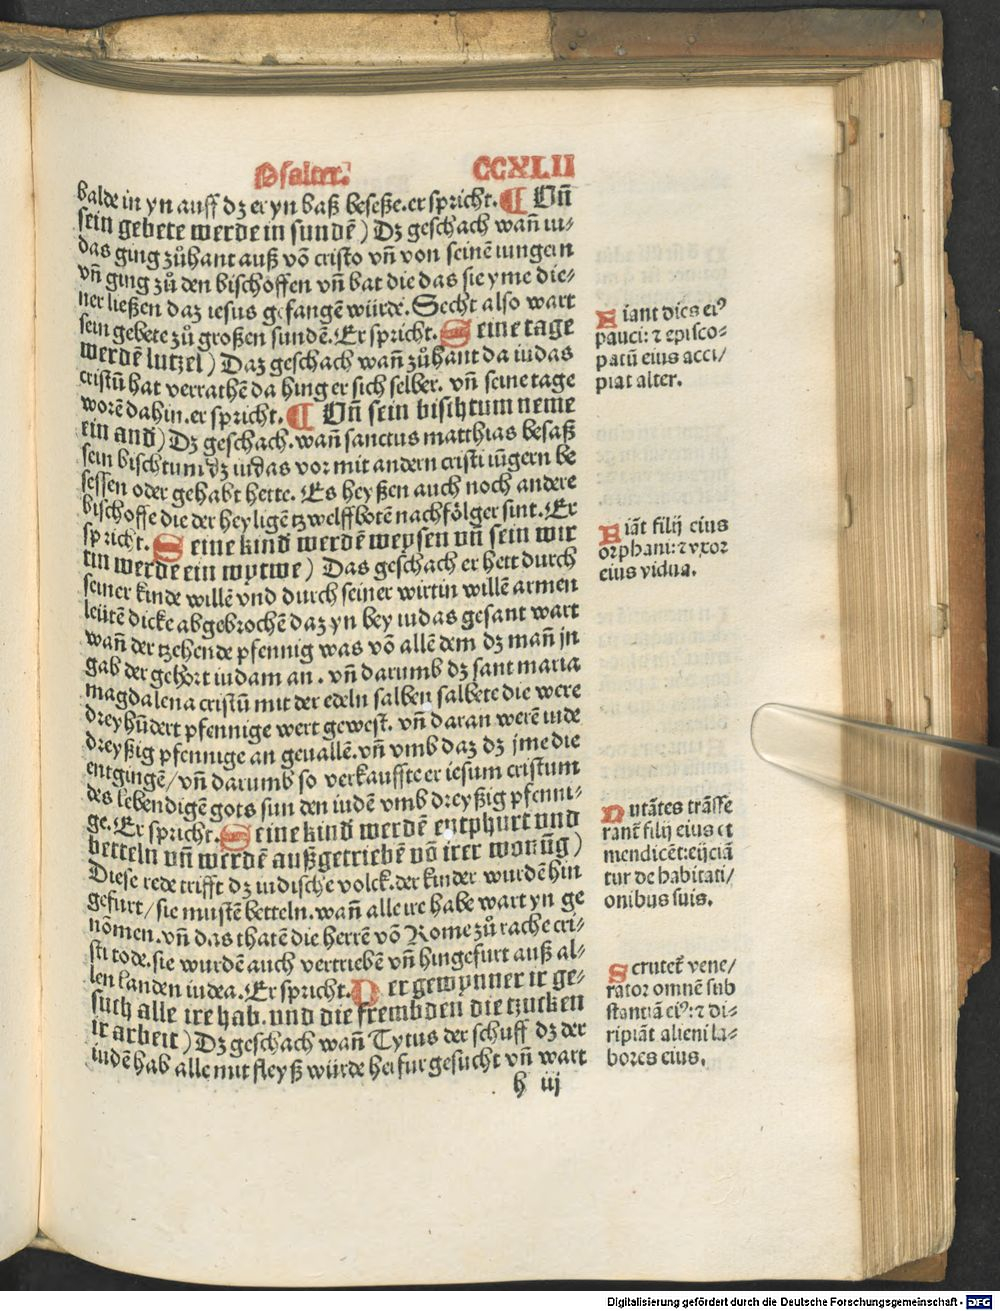 Psalter.
CCXLII
balde in yn auff dz er yn baß beseße. er spricht. ¶ Vñ
sein gebete werde in sundē) Dz geschach wañ iu⸗
das ging zůhant auß vō cristo vñ von seinē iungern
vñ ging zů den bischoffen vñ bat die das sie yme die⸗
ner ließen daz iesus gefangē würde. Secht also wart
sein gebete zů großen sundē. Er spricht. Seine tage
werdē lutzel) Daz geschach wañ zůhant da iudas
cristū hat verrathē da hing er sich selber. vñ seine tage
worē dahin. er spricht. ¶ Vñ sein bisihtum neme
ein and) Dz geschach. wañ sanctus matthias besaß
sein bischtum dz iudas vor mit andern cristi iūgern be
sessen oder gehabt hette. Es heyßen auch noch andere
bischoffe die der heyligē tzwelffbotē nachfölger sint. Er
spricht. Seine kind werdē weysen vñ sein wir
tin werde ein wytwe) Das geschach er hett durch
seiner kinde willē vnd durch seiner wirtin willē armen
leütē dicke abgebrochē daz yn bey iudas gesant wart
wañ der tzehende pfennig was vō allē dem dz mañ jn
gab der gehort iudam an. vñ darumb dz sant maria
magdalena cristū mit der edeln salben salbete die were
dreyhūdert pfennige wert gewest. vñ daran werē iude
dreyßig pfennige an geuallē. vñ vmb daz dz jme die
entgingē/ vñ darumb so verkauffte er iesum cristum
des lebendigē gots sun den iudē vmb dreyßig pfenni⸗
ge. Er spricht. Seine kind werdē entphurt vnd
betteln vñ werdē außgetriebē vō irer wonūg)
Diese rede trifft dz iudische volck. der kinder wurdē hin
gefurt/ sie mustē betteln. wañ alle ire habe wart yn ge
nōmen. vñ das thatē die herrē vō Rome zů rache cri⸗
sti tode. sie wurdē auch vertriebē vñ hingefurt auß al⸗
len landen iudea. Er spricht. Der gewynner ir ge⸗
such alle ire hab. vnd die frembden die tzucken
ir arbeit) Dz geschach wañ Tytus der schuff dz der
iudē hab alle mit fleyß würde herfur gesucht vñ wart
h iij
Fiant dies eiꝰ
pauci: ⁊ episco⸗
patū eius acci/
piat alter.
Fiāt filij eius
orphani: ⁊ vxor
eius vidua.
Nutātes trāsfe
rant̄ filij eius et
mendicēt: eijciā
tur de habitati/
onibus suis.
Scrutet̄ vene/
rator omnē sub
stantiā eiꝰ: ⁊ di⸗
ripiāt alieni la⸗
bores eius.
Digitalisierung gefördert durch die Deutsche Forschungsgemeinschaft - DFG